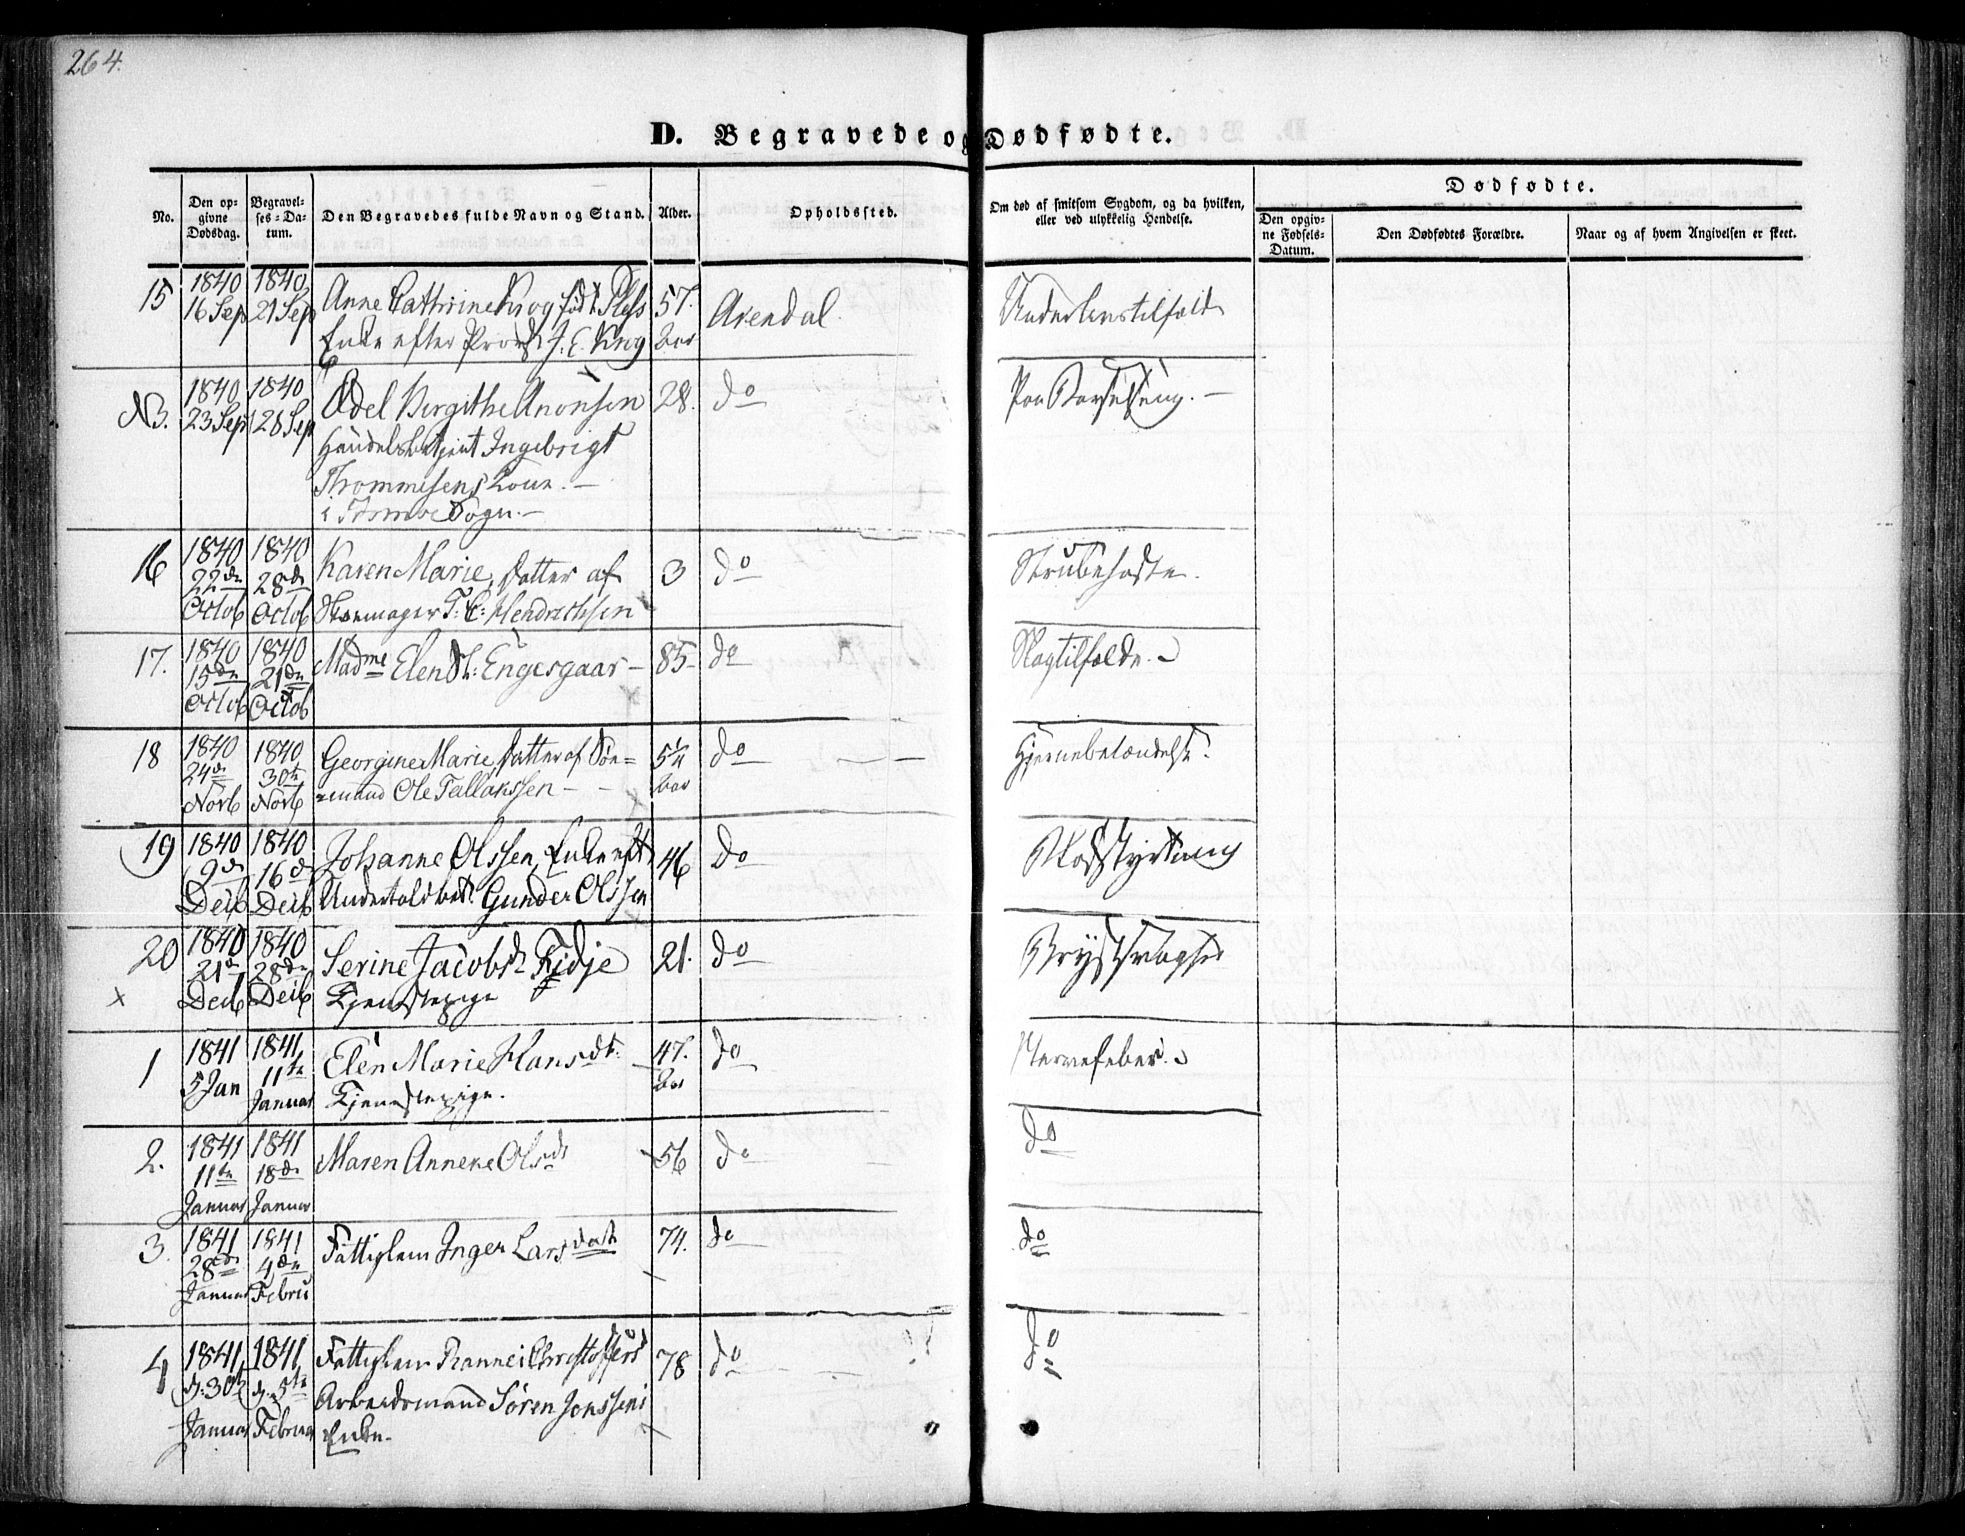 264.
D. Begravede og Dødfødte.
No.
Den op-
givne
Dødsdag.
Begravel-
ses-Da-
tum.
Den Begravedes fulde Navn og Stand.
Alder.
Opholdssted.
Om død af smitsom Sygdom, og da hvilken,
eller ved ulykkelig Hendelse.
Dødfødte.
Den opgiv-
ne Fødsels-
Datum.
Den Dødfødtes Forældre.
Naar og af hvem Angivelsen er skeet.
15 1840 1840 Anne Cathrine Krog født Pless 57. Arendal.
16 Sep 21 Sep Enke efter Provst J. C. Krog Aar
Underlivstilfælde
NB. 1840 1840 Edel Birgithe 28. do
23 Sep 28 Sep Handelsbetjent Ingebrigt
Thommesens Kone.
i Tromøe Sogn.
Paa Barselseng.
16 1840 1840 Karen Marie, Datter af 3 do
22de 28de
Octob Octob Skomager T. C. Hendrichsen
Strubehoste.
17. 1840 1840 Madme Elen Engesgaar 85 do
15de 21de
Octob Octob
Slagtilfælde.
18 1840 1840 Georgine Marie, Datter af Søe- 5½ do
24de 30te =mand Ole Tallakssen Aar
Novb Novb
Hjernebetændelse.
19 1840 1840 Johanne Olssen, Enke eft 46 do
9de 16de
Decb Decb Undertoldbet. Gunder Olssen
Blodstyrtning
20 1840 1840 Serine Jacobsd Kidje 21. do
21de 28de
x Decb Decb Tjenestepige
Brystsvaghed
1 1841 1841 Elen Marie Hansdt. 47. do
5 Jan 11te Aar
Januar Tjenestepige.
Nervefeber.
2. 1841 1841 Maren Annene Olsd 56 do
11te 18de
Januar Januar
do
3. 1841 1841 Fattiglem Inger Larsdatt 74. do
28de 4de
Januar Febru
do
4 1841 1841 Fattiglem Christoffersd 78 do
d. 30te d. 5te Arbeidsmand Søren Jonssens
Januar Februar Enke.
do